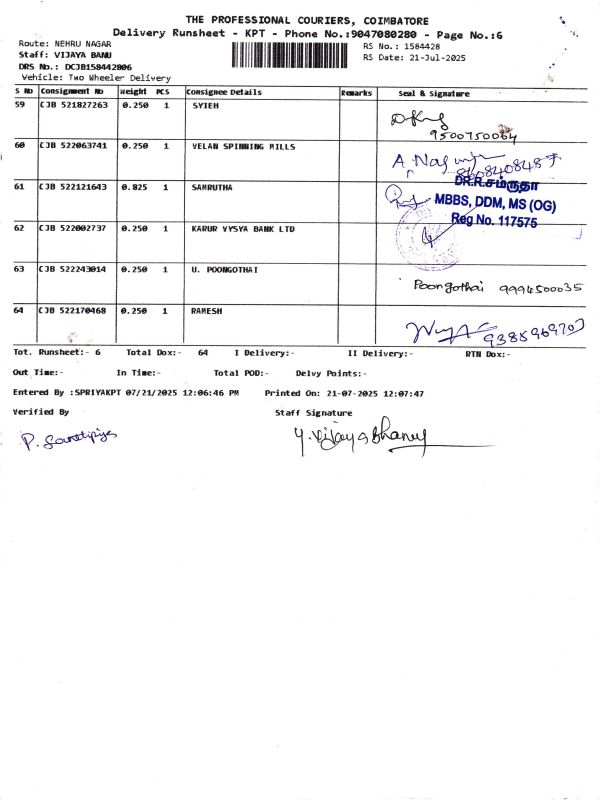 THE PROFESSIONAL COURIERS, COIMBATORE
Delivery Runsheet - KPT - Phone No.:9047080280 - Page No.:6
Route: NEHRU NAGAR
RS No. : 1584428
Staff: VIJAYA BANU
RS Date: 21-Jul-2025
DRS No.: DCJB158442806
Vehicle: Two Wheeler Delivery
S No Consignment No Weight PCS Consignee Details Remarks Seal & Signature
59 CJB 521827263 0.250 1 SYIEH
9500750064
60 CJB 522063741 0.250 1 VELAN SPINNING MILLS
61 CJB 522121643 0.825 1 SAMRUTHA
DR.R.சம்ருதா
MBBS, DDM, MS (OG)
Reg No. 117575
62 CJB 522002737 0.250 1 KARUR VYSYA BANK LTD
63 CJB 522243014 0.250 1 U. POONGOTHAI
Poongothai 9994500035
64 CJB 522170468 0.250 1 RAMESH
Tot. Runsheet:- 6 Total Dox:- 64 I Delivery:- II Delivery:- RTN Dox:-
Out Time:- In Time:- Total POD:- Delvy Points:-
Entered By :SPRIYAKPT 07/21/2025 12:06:46 PM Printed On: 21-07-2025 12:07:47
Verified By Staff Signature